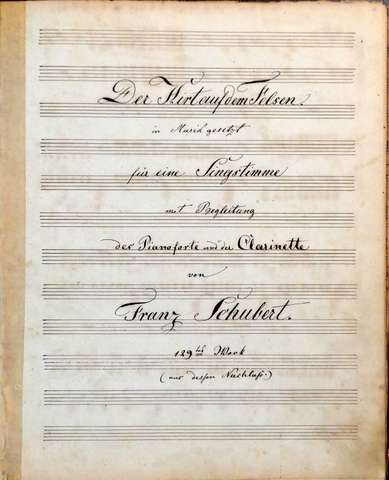 Der Hirt auf dem Felsen.
in Musik gesetzt
für eine Singstimme
mit Begleitung
des Pianoforte und der Clarinette
von
Franz Schubert.
129tes Werk
(aus dessen Nachlaß.)